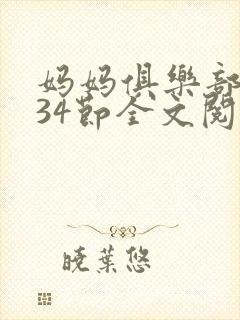 妈妈俱樂部
34節全文閱
曉葉悠